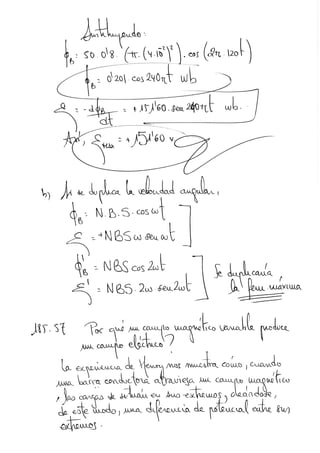 Sustituyendo:
ϕB = 50. 0'8. (π. (4.10⁻²)²). cos (2π. 120t)
ϕB = 0'201 cos 240πt wb
ε = -dϕB/dt = +151'60. sen 240πt wb.
Así, εmax = +151'60 v
b) Si se duplica la velocidad angular,
ϕB = N.B.S. cos ωt
ε = +NBS ω sen ωt
ϕ'B = NBS cos 2ωt
ε' = NBS. 2ω sen 2ωt
Se duplicaría
la fem máxima
185. 57 Por qué un campo magnético variable produce
un campo eléctrico?
La experiencia de Henry nos muestra cómo, cuando
una barra conductora atraviesa un campo magnético
, las cargas se sitúan en sus extremos, creándose,
de este modo, una diferencia de potencial entre sus
extremos.